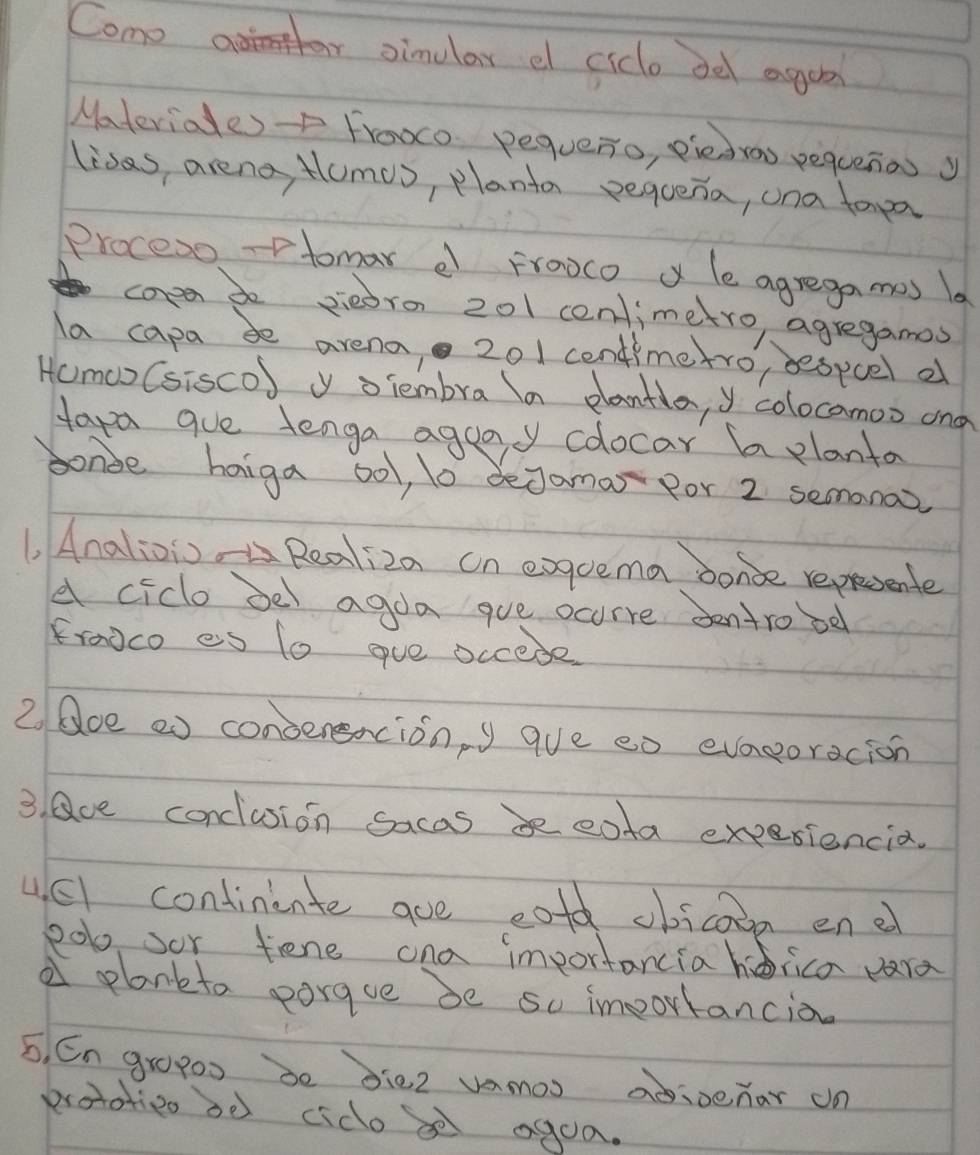 Como simular el ciclo del agua
Materiales → Frasco pequeño, piedras pequeñas y
lisas, arena, Humus, planta pequeña, una tapa
Proceso → tomar el Frasco y le agregamos la
capa de piedra 2 o 1 centimetro, agregamos
la capa de arena, 2 o 1 centimetro, despuel el
Humus (sisco) y siembra la plantla, y colocamos una
tapa que tenga agua, y colocar la planta
donde haiga sol, lo dejamos por 2 semanas
1. Analisis → Realiza un esquema donde represente
el ciclo del agua que ocurre dentro del
Frasco es lo que sucede
2. Que es condensención, y que es evaporación
3. Que conclusión sacas de esta experiencia.
4. El continente que está ubicada en el
polo sur tiene una importancia hidrica para
el planeta porque de su importancia
5. En grupos de diez vamos adiseñar un
prototipo del ciclo del agua.